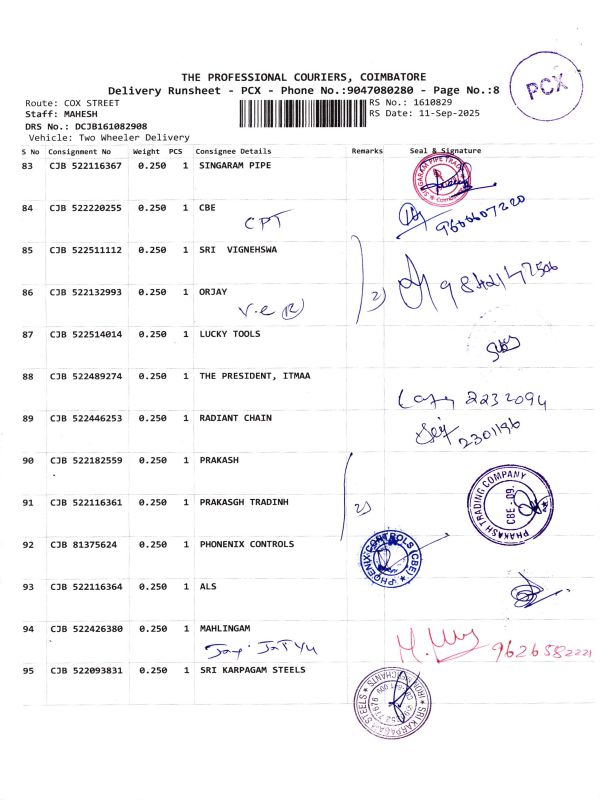 THE PROFESSIONAL COURIERS, COIMBATORE
Delivery Runsheet - PCX - Phone No.:9047080280 - Page No.:8
PCX
Route: COX STREET
RS No.: 1610829
Staff: MAHESH
RS Date: 11-Sep-2025
DRS No.: DCJB161082908
Vehicle: Two Wheeler Delivery
S No Consignment No Weight PCS Consignee Details Remarks Seal & Signature
83 CJB 522116367 0.250 1 SINGARAM PIPE
SINGARAM PIPE TRAD
84 CJB 522220255 0.250 1 CBE
CPT
9600607220
85 CJB 522511112 0.250 1 SRI VIGNEHSWA
86 CJB 522132993 0.250 1 ORJAY
2) 9842147506
V.e (R)
87 CJB 522514014 0.250 1 LUCKY TOOLS
88 CJB 522489274 0.250 1 THE PRESIDENT, ITMAA
2232094
89 CJB 522446253 0.250 1 RADIANT CHAIN
2301196
90 CJB 522182559 0.250 1 PRAKASH
91 CJB 522116361 0.250 1 PRAKASGH TRADINH
2)
PRAKASH TRADING COMPANY
CBE - 09.
92 CJB 81375624 0.250 1 PHONENIX CONTROLS
PHOENIX CONTROLS (CBE)
93 CJB 522116364 0.250 1 ALS
94 CJB 522426380 0.250 1 MAHLINGAM
9626582221
95 CJB 522093831 0.250 1 SRI KARPAGAM STEELS
SRI KARPAGAM STEELS